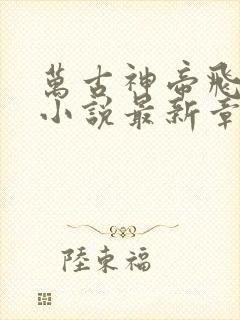 萬古神帝飛
小說最新章
陸東福